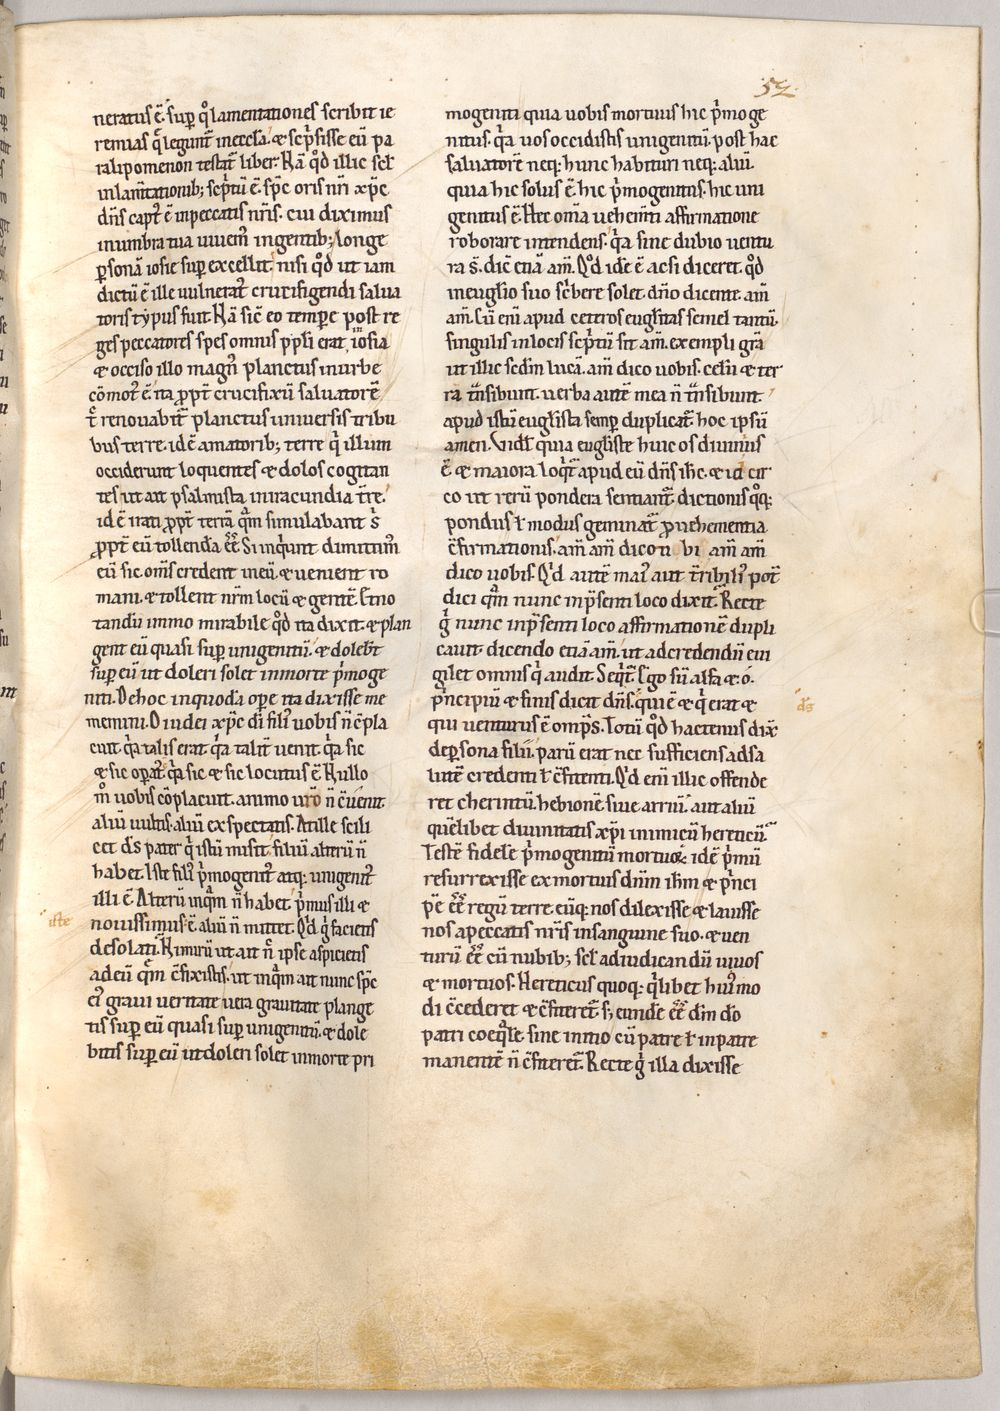 52
neratus ē. sup̱ q̊ lamentationes scribit ie
remias q̄ legunt̄ inecclā. & sc̄psisse eū pa
ralipomenon testat̄ liber. Nā qd̊ illic scł
inlam̄tationib; sc̄ptū ē. sp̄c oris nr̄i xp̄c
dn̄s capt᷒ ē inpeccatis nr̄is. cui diximus
inumbra tua uiuem᷒ ingentib; longe
p̱sonā iosie sup̱excellit. nisi qd̊ ut iam
dictū ē ille uulnerat᷒ crucifigendi salua
toris typus fuit. Nā sic̄ eo tempe post re
ges peccatores spes omnis ppl̄i erat iniosia
& occiso illo magn᷒ planctus inurbe
cōmot᷒ ē. ita ppt̄ crucifixū saluatorē
renouabit̄ planctus uniuersis tribu
bus terre. id ē amatorib; terre q̄ illum
occiderunt loquentes & dolos cogitan
tes ut ait psalmista iniracundia t̄re.
id ē irati ppt̄ terrā qm̄ simulabant s̄
ppt̄ eū tollenda ēē. Si inq̄unt dimittim᷒
eū sic. om̄s credent ineū. & uenient ro
mani. & tollent nr̄m locū & gentē. Et no
tandū immo mirabile qd̊ ita dixit. & plan
gent eū quasi sup̱ unigenitū. & doleb̄t
sup̱ eū ut doleri solet inmorte p̄moge
niti. De hoc inquodā ope ita dixisse me
memini. O iudei xp̄c di fili᷒ uobis n̄ c̄pla
cuit. q̄a talis erat q̄a talit̄ uenit. q̄a sic
& sic opat᷒. q̄a sic & sic locutus ē. Nullo
m̊ uobis cōplacuit. animo uro n̄ c̄uenit.
aliū uultis. aliū exspectatis. At ille scili
cet d̄s pater q̄ istū misit. filiū alterū n̄
habet. Iste fili᷒ p̄mogenit᷒ atq; unigenit᷒
illi ē. Alterū inq̄m n̄ habet. p̄mus illi &
iste
nouissimus ē. aliū n̄ mittet. Qd̄ ḡ facietis
desolati. Nimirū ut ait n̄ ipse aspicietis
adeū qm̄ c̄fixistis. ut inq̄m ait nunc sp̄c
ei᷒ graui ueritate uera grauitate plange
tis sup̱ eū quasi sup̱ unigenitū. & dole
bitis sup̱ eū ut doleri solet inmorte pri
mogeniti quia uobis mortuus hic p̄moge
nitus. q̄a uos occidistis unigenitū. post hac
saluatorē neq; hunc habituri neq; aliū.
quia hic solus ē. hic p̄mogenitus. hic uni
genitus ē. Hec om̄ia uehem̄ti affirmatione
roborare intendens. q̄a sine dubio uentu
ra s̄. dic̄ etiā am̄. Qd̊ idē ē acsi diceret. qd̊
ineuglio suo sc̄bere solet. dn̄o dicente. am̄
am̄. Cū eni apud ceteros euglistas semel tantū.
singulis inlocis sc̄ptū sit am̄. exempli gr̄a
ut illic sedm̄ lucā. am̄ dico uobis. celū & ter
ra t̄nsibunt. uerba autē mea n̄ t̄nsibunt.
apud istū euglista semp̱ duplicat᷒ hoc ipsū
amen. Vidł quia eugliste huic os diuinius
ē & maiora loq̄t᷒ apud eū dn̄s ih̄c. & id cir
co ut rerū pondera sentiant᷒. dictionis qq;
pondus ł modus geminat᷒ puehementia
c̄firmationis. am̄ am̄ dico uobi am̄ am̄
dico uobis. Qd̄ autē mai᷒ aut t̄ribili᷒ pot̄
dici qm̄ nunc inp̄senti loco dixit. Recte
ḡ nunc inp̄senti loco affirmationē dupli
cauit. dicendo etiā am̄. ut adcredendū eui
gilet omnis q̄ audit. Seqt̄. Ego sū alfa & .o.
p̄ncipiū & finis dicit dn̄s. qui ē & q̄ erat &
d̄s
qui uenturus ē omp̄s. Totū qd̊ hactenus dix̄
dep̱sona filii. parū erat nec sufficiens adsa
lutē credenti ł c̄fitenti. Qd̄ eni illic offende
ret cherintū. hebionē siue arriū. aut aliū
quēlibet diuinitatis xp̄i inimicū hereticū.
Testē fidelē p̄mogenitū mortuoꝝ. id ē p̄mū
resurrexisse ex mortuis dn̄m ih̄m & p̄nci
pē ēē regū terre. eūq; nos dilexisse & lauisse
nos apeccatis nr̄is insanguine suo. & uen
turū ēē cū nubib; scł adiudicandū uiuos
& mortuos. Hereticus quoq; q̄libet hui᷒mo
di c̄cederet & c̄fiteret᷒. s; eundē ēē dm̄ do
patri coeq̄lē sine initio cū patre ł inpatre
manentē n̄ c̄fiteret᷒. Recte ḡ illa dixisse